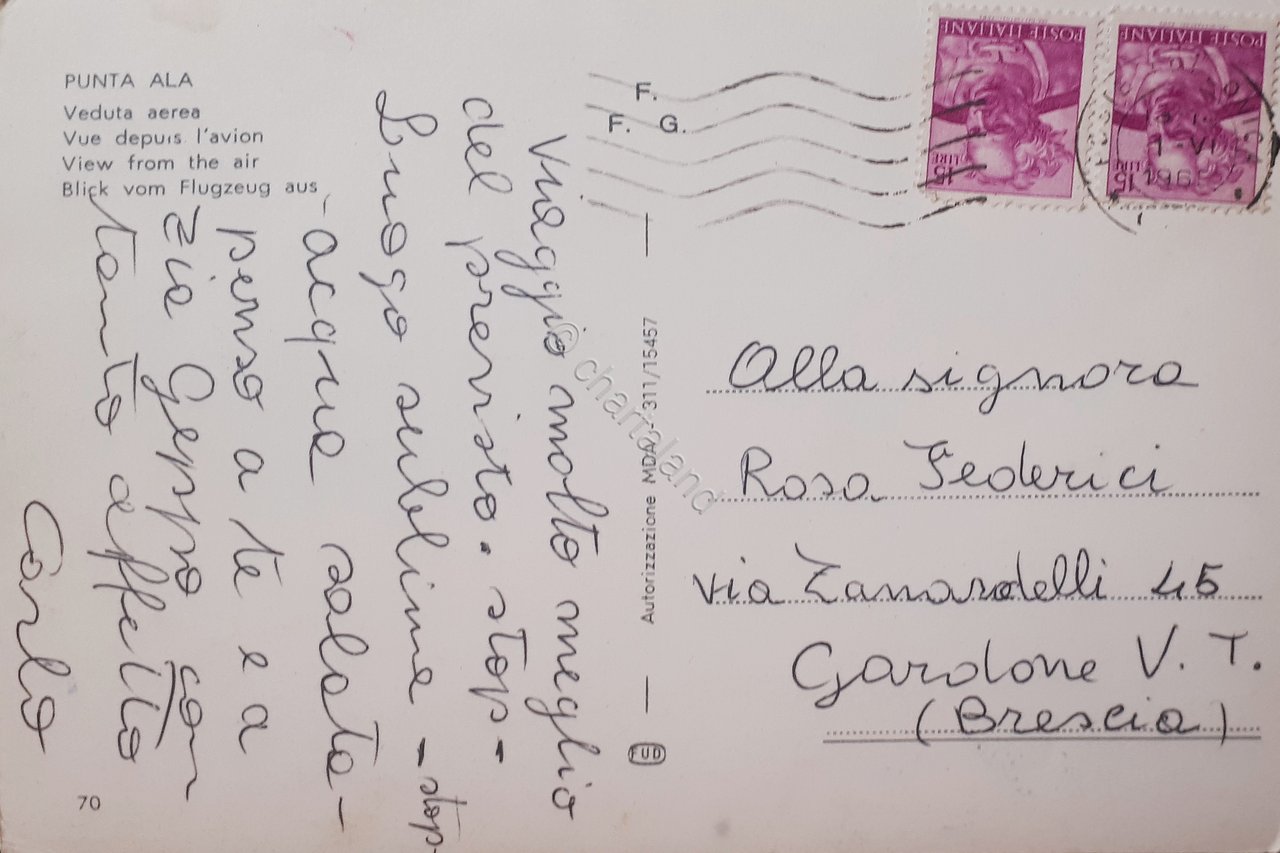 PUNTA ALA
Veduta aerea
Vue depuis l'avion
View from the air
Blick vom Flugzeug aus
Viaggio molto meglio
del previsto. stop -
Luogo sublime - stop-
- acqua salata -
penso a te e a
zia Geppo con
tanto affetto
Carlo
70
F.
F. G.
Autorizzazione MDA - 311/15457
FUD
© chartaland
POSTE ITALIANE
15 LIRE
POSTE ITALIANE
15 LIRE
Alla signora
Rosa Federici
via Zanardelli 45
Gardone V. T.
(Brescia)